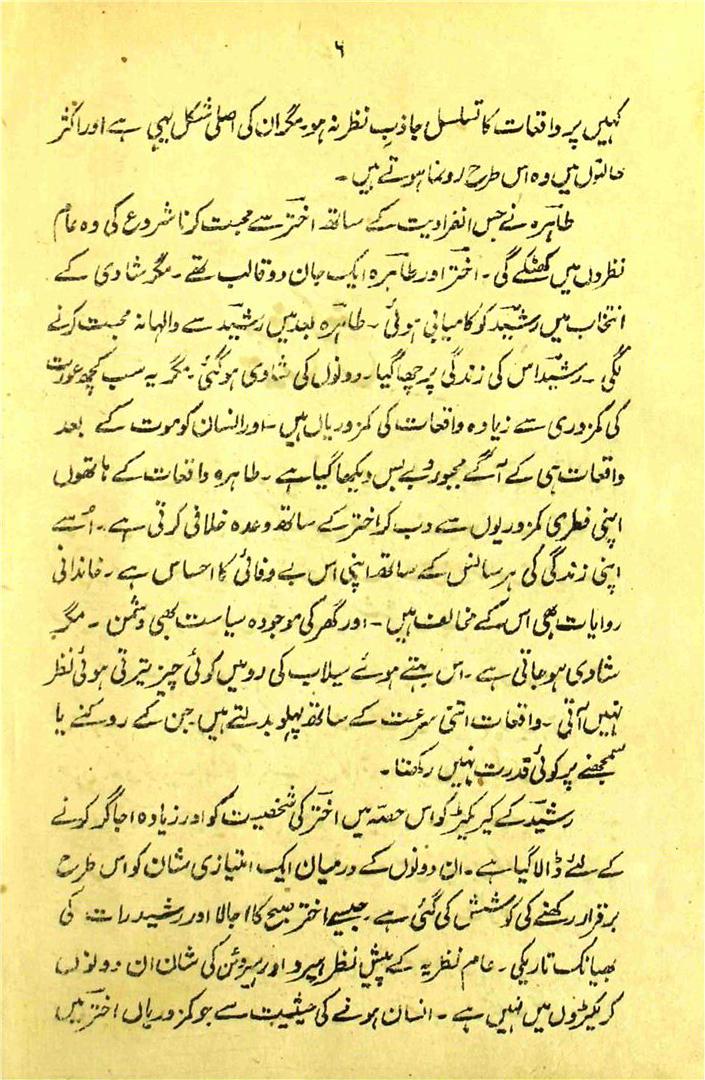 ۶
کہیں پر واقعات کا تسلسل جاذبِ نظر نہ ہو۔ مگر ان کی اصلی شکل یہی ہے اور اکثر
حالتوں میں وہ اس طرح رونما ہوتے ہیں۔
طاہرہ نے جس انفرادیت کے ساتھ اختر سے محبت کرنا شروع کی وہ عام
نظروں میں کھٹکے گی۔ اختر اور طاہرہ ایک جان دو قالب تھے۔ مگر شادی کے
انتخاب میں رشید کو کامیابی ہوئی۔ طاہرہ بعد میں رشید سے والہانہ محبت کرنے
لگی۔ رشید اس کی زندگی پر چھا گیا۔ دونوں کی شادی ہو گئی۔ مگر یہ سب کچھ عورت
کی کمزوری سے زیادہ واقعات کی کمزوریاں ہیں۔ اور انسان کو موت کے بعد
واقعات ہی کے آگے مجبور و بے بس دیکھا گیا ہے۔ طاہرہ واقعات کے ہاتھوں
اپنی فطری کمزوریوں سے دب کر اختر کے ساتھ وعدہ خلافی کرتی ہے۔ اُسے
اپنی زندگی کی ہر سانس کے ساتھ اپنی اس بے وفائی کا احساس ہے۔ خاندانی
روایات بھی اس کے مخالف ہیں۔ اور گھر کی موجودہ سیاست بھی دشمن۔ مگر
شادی ہو جاتی ہے۔ اس بہتے ہوئے سیلاب کی رو میں کوئی چیز تیرتی ہوئی نظر
نہیں آتی۔ واقعات اتنی سرعت کے ساتھ پہلو بدلتے ہیں جن کے روکنے یا
سمجھنے پر کوئی قدرت نہیں رکھتا۔
رشید کے کیریکٹر کو اس حصہ میں اختر کی شخصیت کو اور زیادہ اجاگر کرنے
کے لئے ڈالا گیا ہے۔ ان دونوں کے درمیان ایک امتیازی شان کو اس طرح
برقرار رکھنے کی کوشش کی گئی ہے۔ جیسے اختر صبح کا اجالا اور رشید رات کی
بھیانک تاریکی۔ عام نظریہ کے پیشِ نظر ہیرو اور ہیروئن کی شان ان دونوں
کریکٹروں میں نہیں ہے۔ انسان ہونے کی حیثیت سے جو کمزوریاں اختر میں